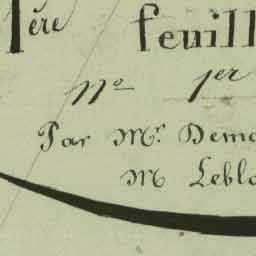 1ère feuill
no 1er
Par Mr. Demo
M Lebla